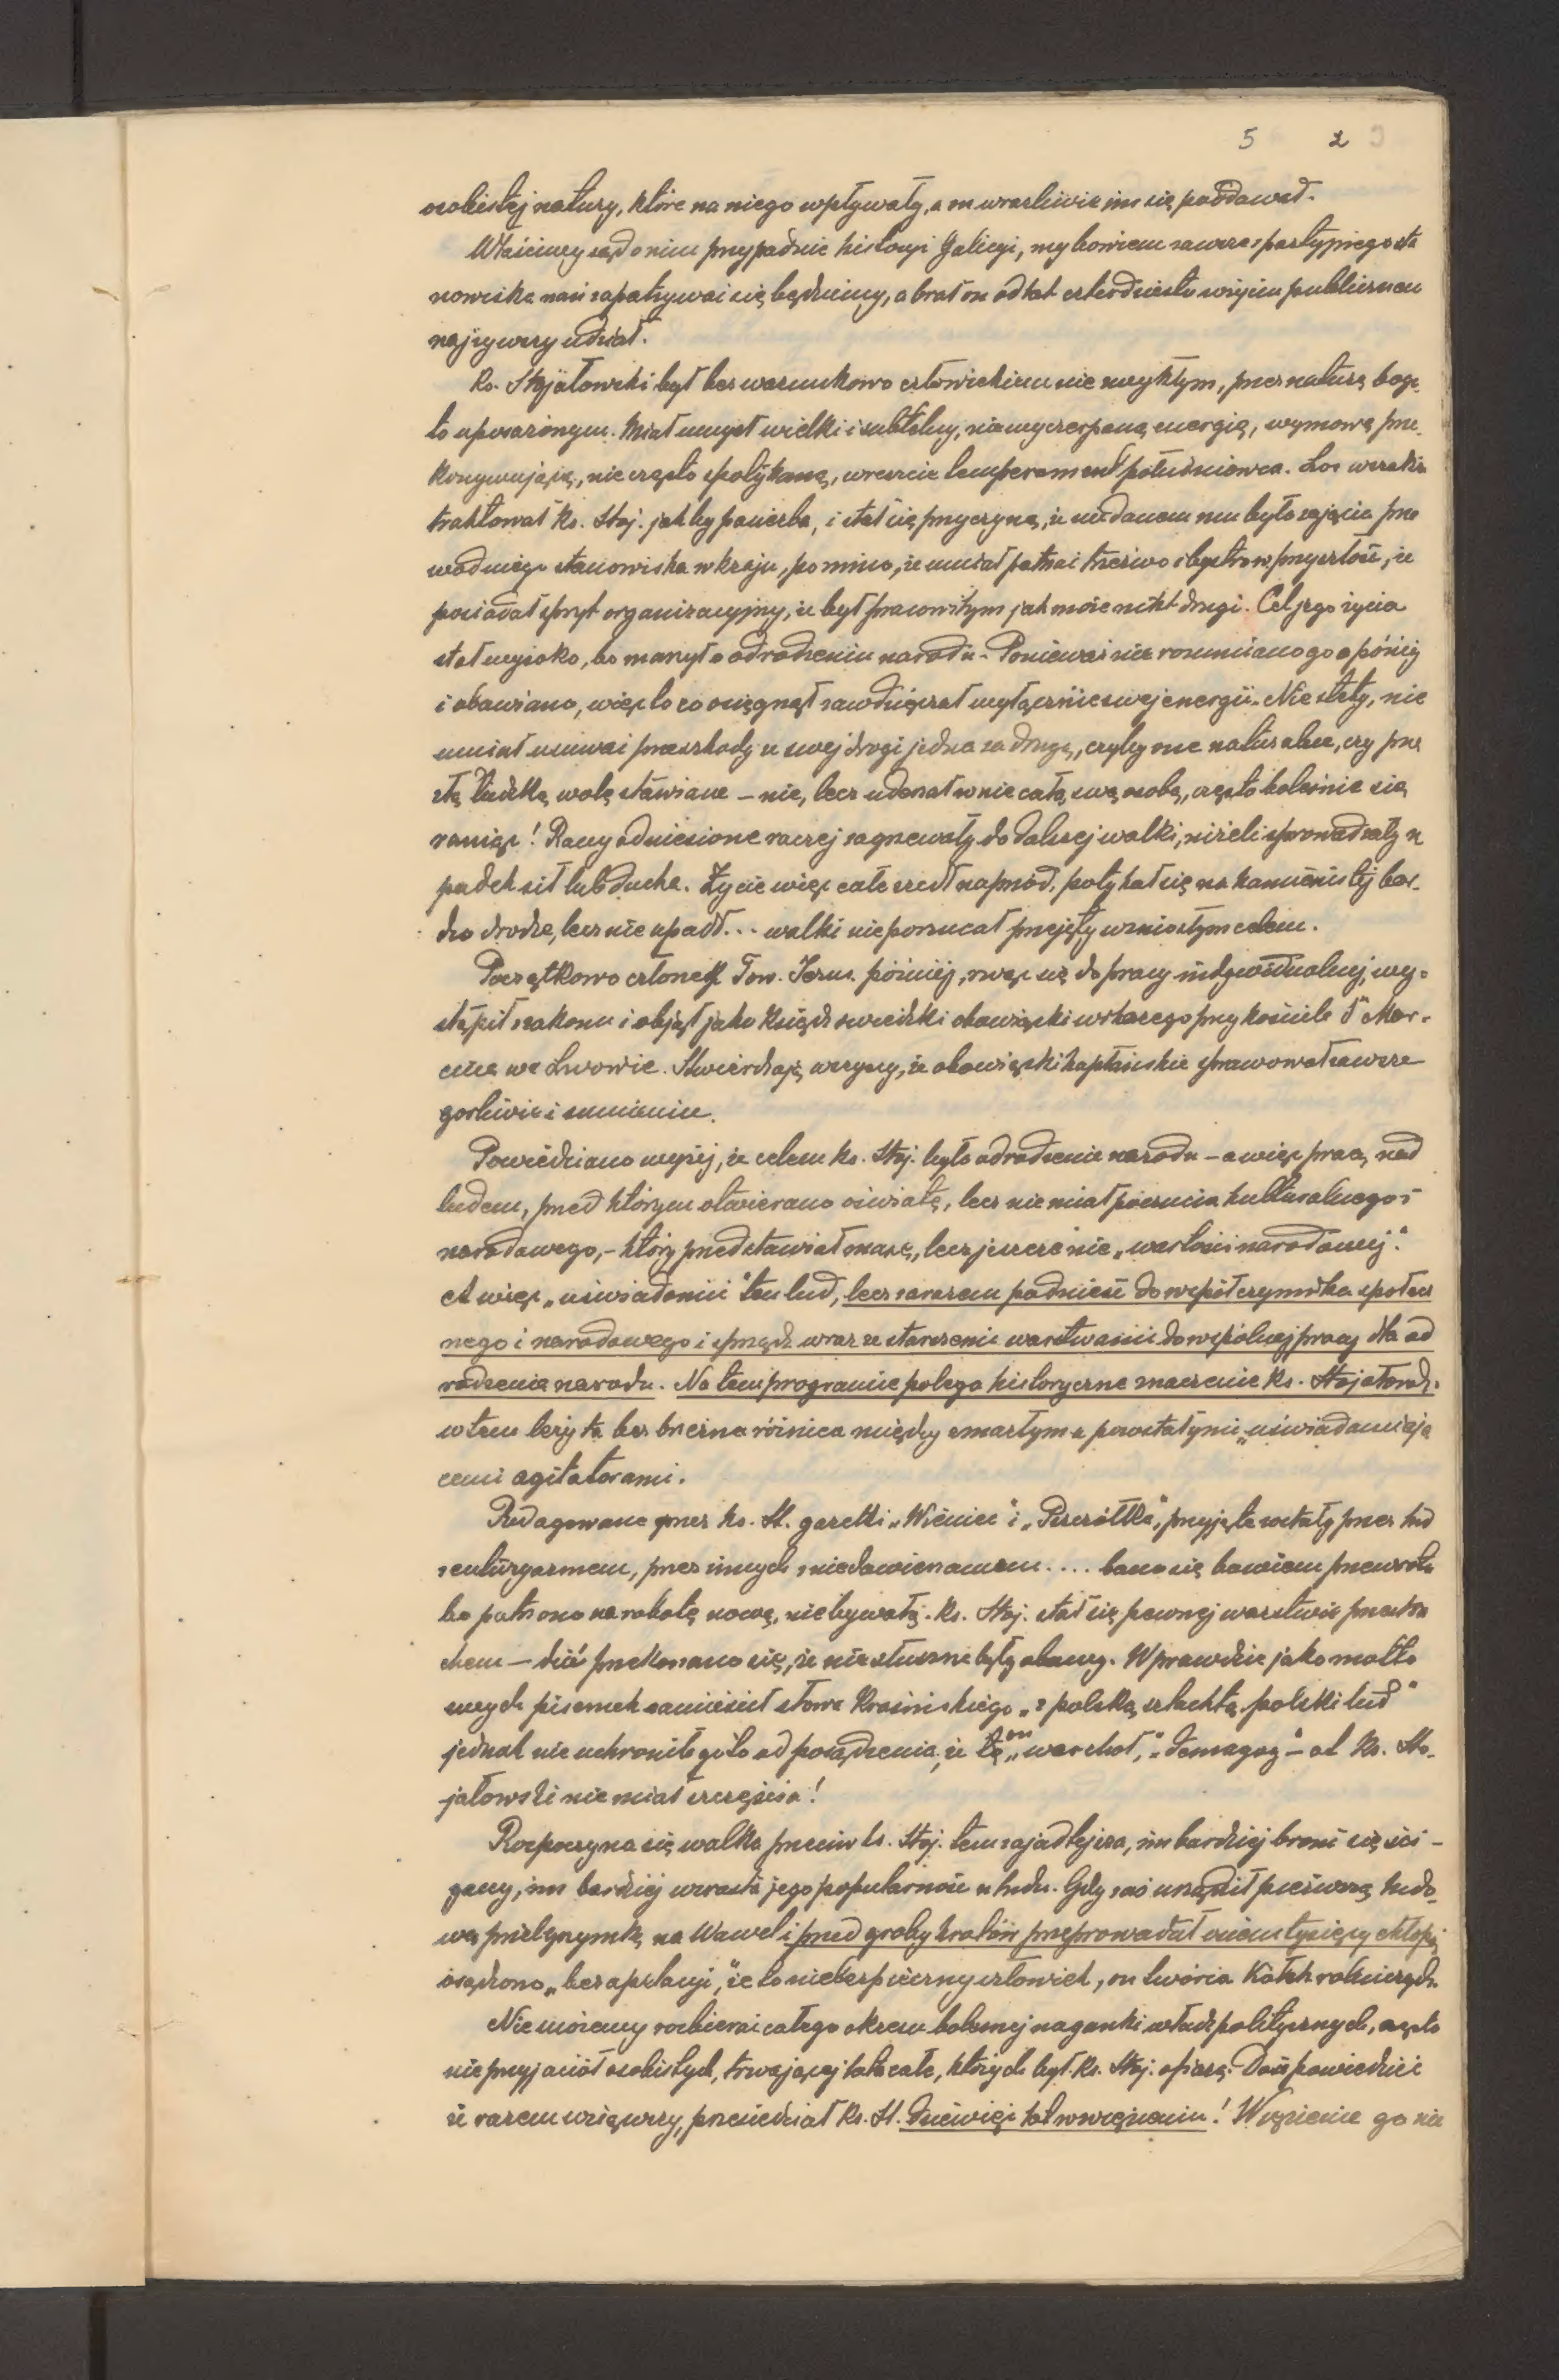 5 2
osobistej natury, które na niego wpływały, a on wrażliwie im się poddawał.
Właściwy sąd o nim przypadnie historyi Galicyi, my bowiem zawsze z partyjnego sta
nowiska nań zapatrywać się będziemy, a brał on od lat czterdziestu w życiu publicznem
najżywszy udział.
Ks. Stojałowski był bezwarunkowo człowiekiem nie zwykłym, przez naturę boga
to uposażonym. Miał umysł wielki i subtelny, niewyczerpaną energię, wymowę prze
konywującą, nie często spotykaną, wreszcie temperament południowca. Los wszakże
traktował ks. Stoj. jakby pasierba, i stał się przyczyną, że nie danem mu było zajęcie przo
wodniego stanowiska w kraju, pomimo, że umiał patrzeć trzeźwo i bystro w przyszłość, że
posiadał spryt organizacyjny, że był pracowitym jak może nikt drugi. Cel jego życia
stał wysoko, bo marzył o odrodzeniu narodu. Ponieważ nie rozumiano go a później
i obawiano, więc to co osięgnął zawdzięczał wyłącznie swej energii. Nie stety, nie
umiał usuwać przeszkody ze swej drogi jedna za drugą, czyby one naturalne, czy prze
złą ludzką wolę stawiane – nie, lecz uderzał w nie całą swą osobą, często boleśnie się
raniąc! Rany odniesione raczej zagrzewały do dalszej walki, niżeli sprowadzały u
padek sił lub ducha. Życie więc całe szedł naprzód, potykał się na kamienistej bar-
dzo drodze, lecz nie upadł... walki nie porzucał przejęty wzniosłym celem.
Początkowo członek Tow. Jezus. później, rwąc się do pracy indywidualnej, wy-
stąpił z zakonu i objął jako ksiądz świecki obowiązki wikarego przy kościele Ś" Mar-
cina we Lwowie. Stwierdzają wszyscy, że obowiązki kapłańskie sprawował zawsze
gorliwie i sumiennie.
Powiedziano wyżej, że celem ks. Stoj. było odrodzenie narodu – a więc praca nad
ludem, przed którym otwierano oświatę, lecz nie miał poczucia kulturalnego i
narodowego, – który przedstawiał masę, lecz jeszcze nie „wartości narodowej".
A więc „uświadomić" ten lud, lecz zarazem podnieść do współczynnika społecz
nego i narodowego i sprządz wraz ze starszemi warstwami do wspólnej pracy dla od
rodzenia narodu. Na tem programie polega historyczne znaczenie ks. Stojałowsk.
w tem leży ta bezbrzeżna różnica między zmarłym a pozostałymi „uświadamiają
cemi agitatorami.
Redagowane przez ks. St. gazetki „Wieniec" i „Pszczółka", przyjęte zostały przez lud
z entuzyazmem, przez innych z niedowierzaniem .... bano się bowiem przewrotu
bo patrzono na robotę nową, niebywałą. Ks. Stoj. stał się pewnej warstwie postra
chem – dziś przekonano się, że nie słuszne były obawy. Wprawdzie jako motto
swych pisemek zamieścił słowa Krasińskiego „z polską szlachtą polski lud"
jednak nie uchroniło go to od posądzenia, że to on „warchoł", „demagog" – ot ks. Sto-
jałowski nie miał szczęścia!
Rozpoczyna się walka przeciw ks. Stoj. tem zajadlejsza, im bardziej broni się ści-
gany, im bardziej wzrasta jego popularność u ludu. Gdy zaś urządził pierwszą ludo-
wą pielgrzymkę na Wawel i przed groby królów przeprowadził ośiem tysięcy chłopów
osądzono „bez apelacyi", że to niebezpieczny człowiek, on twórca Kółek rolniczych.
Nie możemy rozbierać całego okresu bolesnej naganki władz politycznych, często
nieprzyjaciół osobistych, trwającej lata całe, których był ks. Stoj. ofiarą. Dość powiedzieć
że razem wziąwszy, przesiedział ks. St. dziewięć lat w więzieniu! Więzienie go nie